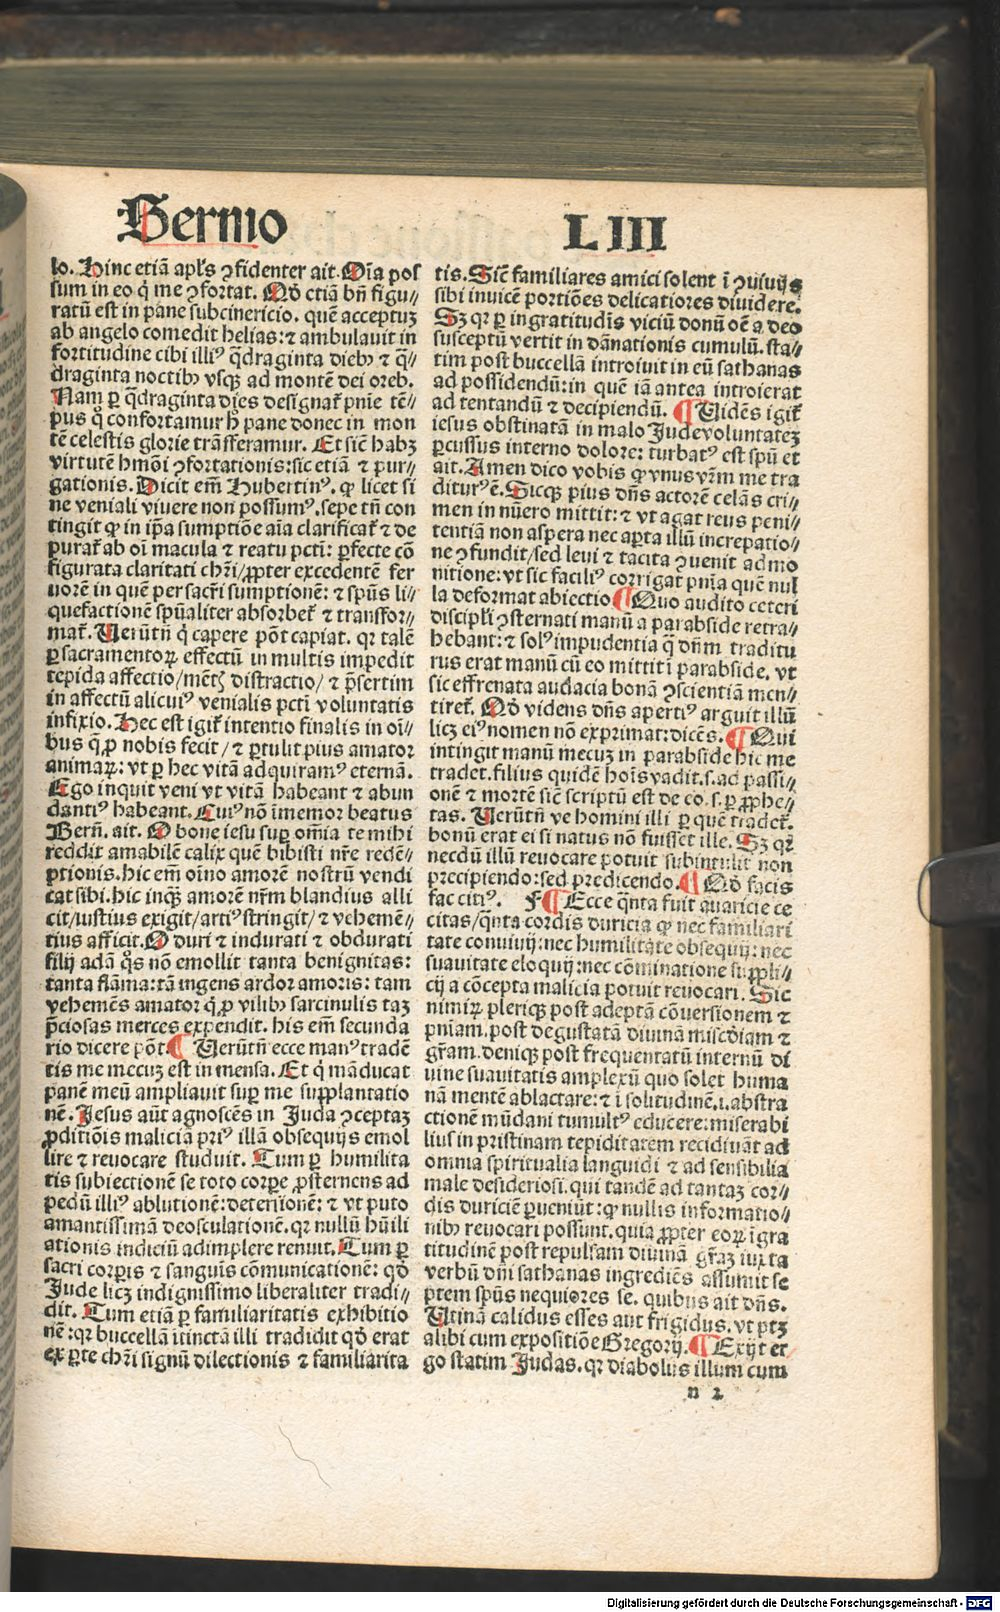 Sermo LIII
lo. Hinc etiā apl's ꝯfidenter ait. Oīa pos
sum in eo q̇ me ꝯfortat. Qđ etiā bn̄ figu⸗
ratū est in pane subcinericio. quē acceptuꝫ
ab angelo comedit helias: ⁊ ambulauit in
fortitudine cibi illiꝰ q̄draginta dieb⁊ ⁊ q̄⸗
draginta noctib⁊ vsqꝫ ad montē dei oreb.
Nam ꝑ q̄draginta dies designat᷑ pn̄ie tē⸗
pus q̊ confortamur h̵ pane donec in mon
tē celestis glorie trāsferamur. Et sic̄ habꝫ
virtutē hmōi ꝯfortationis: sic etiā ⁊ pur⸗
gationis. Dicit em̄ Hubertinꝰ. ꝙ licet si
ne veniali viuere non possumꝰ. sepe tn̄ con
tingit ꝙ in ip̄a sumptiōe aīa clarificat᷑ ⁊ de
purat᷑ ab oī macula ⁊ reatu pcti: ꝑfecte cō
figurata claritati chr̄i/ ꝓpter excedentē fer
uorē in quē per sacr̄i sumptionē: ⁊ spūs li⸗
quefactionē spūaliter absorbet᷑ ⁊ transfor⸗
mat᷑. Verūtn̄ q̇ capere pōt capiat. qꝛ talē
ꝑ sacramentoꝝ effectū in multis impedit
tepida affectio/ mēt⁊ distractio/ ⁊ p̄sertim
in affectū alicuiꝰ venialis pcti voluntatis
infixio. Hec est igit᷑ intentio finalis in oī⸗
bus q̄ ꝓ nobis fecit/ ⁊ ꝑtulit pius amator
animaꝝ: vt ꝑ hec vitā adquiramꝰ eternā.
Ego inquit veni vt vitā habeant ⁊ abun
dantiꝰ habeant. Cuiꝰ nō īmemor beatus
Bern̄. ait. O bone iesu suꝑ om̄ia te mihi
reddit amabilē calix quē bibisti nr̄e redē⸗
ptionis. hic em̄ oīno amorē nostrū vendi
cat sibi. hic inqꝫ amorē nr̄m blandius alli
cit/ iustius exigit/ artiꝰ stringit/ ⁊ vehemē⸗
tius afficit. O duri ⁊ indurati ⁊ obdurati
filij adā q̊s nō emollit tanta benignitas:
tanta flāma: tā ingens ardor amoris: tam
vehemēs amator q̇ ꝓ vilib⁊ sarcinulis taꝫ
p̄ciosas merces expendit. his em̄ secunda
rio dicere pōt. ¶ Verūtn̄ ecce manꝰ tradē
tis me mecuꝫ est in mensa. Et q̇ māducat
panē meū ampliauit suꝑ me supplantatio
nē. Jesus aūt agnoscēs in Juda ꝯceptaꝫ
ꝓditiōis maliciā priꝰ illā obsequijs emol
lire ⁊ reuocare studuit. Tum ꝑ humilita
tis subiectionē se toto corꝑe ꝓsternens ad
pedū illiꝰ ablutionē: detersionē: ⁊ vt puto
amantissimā deosculationē. qꝛ nullū hūili
ationis indiciū adimplere renuit. Tum ꝑ
sacri corꝑis ⁊ sanguis cōmunicationē: qđ
Jude licꝫ indignissimo liberaliter tradi⸗
dit. Tum etiā ꝑ familiaritatis exhibitio
nē: qꝛ buccellā ītinctā illi tradidit qđ erat
ex ꝑte chr̄i signū dilectionis ⁊ familiarita
tis. Sic̄ familiares amici solent ī ꝯuiuijs
sibi inuicē portiōes delicatiores diuidere.
Sꝫ qꝛ ꝑ ingratitudīs viciū donū oē a deo
susceptū vertit in dānationis cumulū. sta⸗
tim post buccellā introiuit in eū sathanas
ad possidendū: in quē iā antea introierat
ad tentandū ⁊ decipiendū. ¶ Vidēs igit᷑
iesus obstinatā in malo Jude voluntateꝫ
ꝑcussus interno dolore: turbatꝰ est spū et
ait. Amen dico vobis ꝙ vnus vr̄m me tra
diturꝰ ē. Sicqꝫ pius dn̄s actorē celās cri⸗
men in nūero mittit: ⁊ vt agat reus peni⸗
tentiā non aspera nec aꝑta illū increpatio⸗
ne ꝯfundit/ sed leui ⁊ tacita ꝯuenit admo
nitione: vt sic faciliꝰ corrigat pn̄ia quē nul
la deformat abiectio ¶ Quo audito ceteri
discipl'i ꝯsternati manū a parabside retra⸗
hebant: ⁊ solꝰ impudentia q̄ dn̄m traditu
rus erat manū cū eo mittit ī parabside. vt
sic effrenata audacia bonā ꝯscientiā men⸗
tiret᷑. Qđ videns dn̄s apertiꝰ arguit illū
licꝫ eiꝰ nomen nō exprimat: dicēs. ¶ Qui
intingit manū mecuꝫ in parabside hic me
tradet. filius quidē hoīs vadit. s. ad passi⸗
onē ⁊ mortē sic̄ scriptū est de eo. s. ꝑ ꝓphe⸗
tas. Verūtn̄ ve homini illi ꝑ quē tradet᷑.
bonū erat ei si natus nō fuisset ille. Sꝫ qꝛ
necdū illū reuocare potuit subintulit non
precipiendo: sed predicendo. ¶ Qđ facis
fac citiꝰ. F ¶ Ecce q̄nta fuit auaricie ce
citas/ q̄nta cordis duricia ꝙ nec familiari
tate conuiuij: nec humilitate obsequij: nec
suauitate eloquij: nec cōminatione suppli⸗
cij a cōcepta malicia potuit reuocari. Sic
nimiꝝ pleriqꝫ post adeptā cōuersionem ⁊
pn̄iam. post degustatā diuinā misc̄diam ⁊
gr̄am. deniqꝫ post frequentatū internū di
uine suauitatis amplexū quo solet huma
nā mentē ablactare: ⁊ ī solitudinē. i. abstra
ctionē mūdani tumultꝰ educere: miserabi
lius in pristinam tepiditatem recidiuāt ad
omnia spiritualia languidi ⁊ ad sensibilia
male desideriosi. qui tandē ad tantaꝫ cor⸗
dis duriciē ꝑueniūt: ꝙ nullis informatio⸗
nib⁊ reuocari possunt. quia ꝓpter eoꝝ īgra
titudinē post repulsam diuinā gr̄aꝫ iuxta
verbū dn̄i sathanas ingrediēs assumit se
ptem spūs nequiores se. quibus ait dn̄s.
Vtinā calidus esses aut frigidus. vt ptꝫ
alibi cum expositiōe Gregorij. ¶ Exijt er⸗
go statim Judas. qꝛ diabolus illum cum
n 2
Digitalisierung gefördert durch die Deutsche Forschungsgemeinschaft - DFG